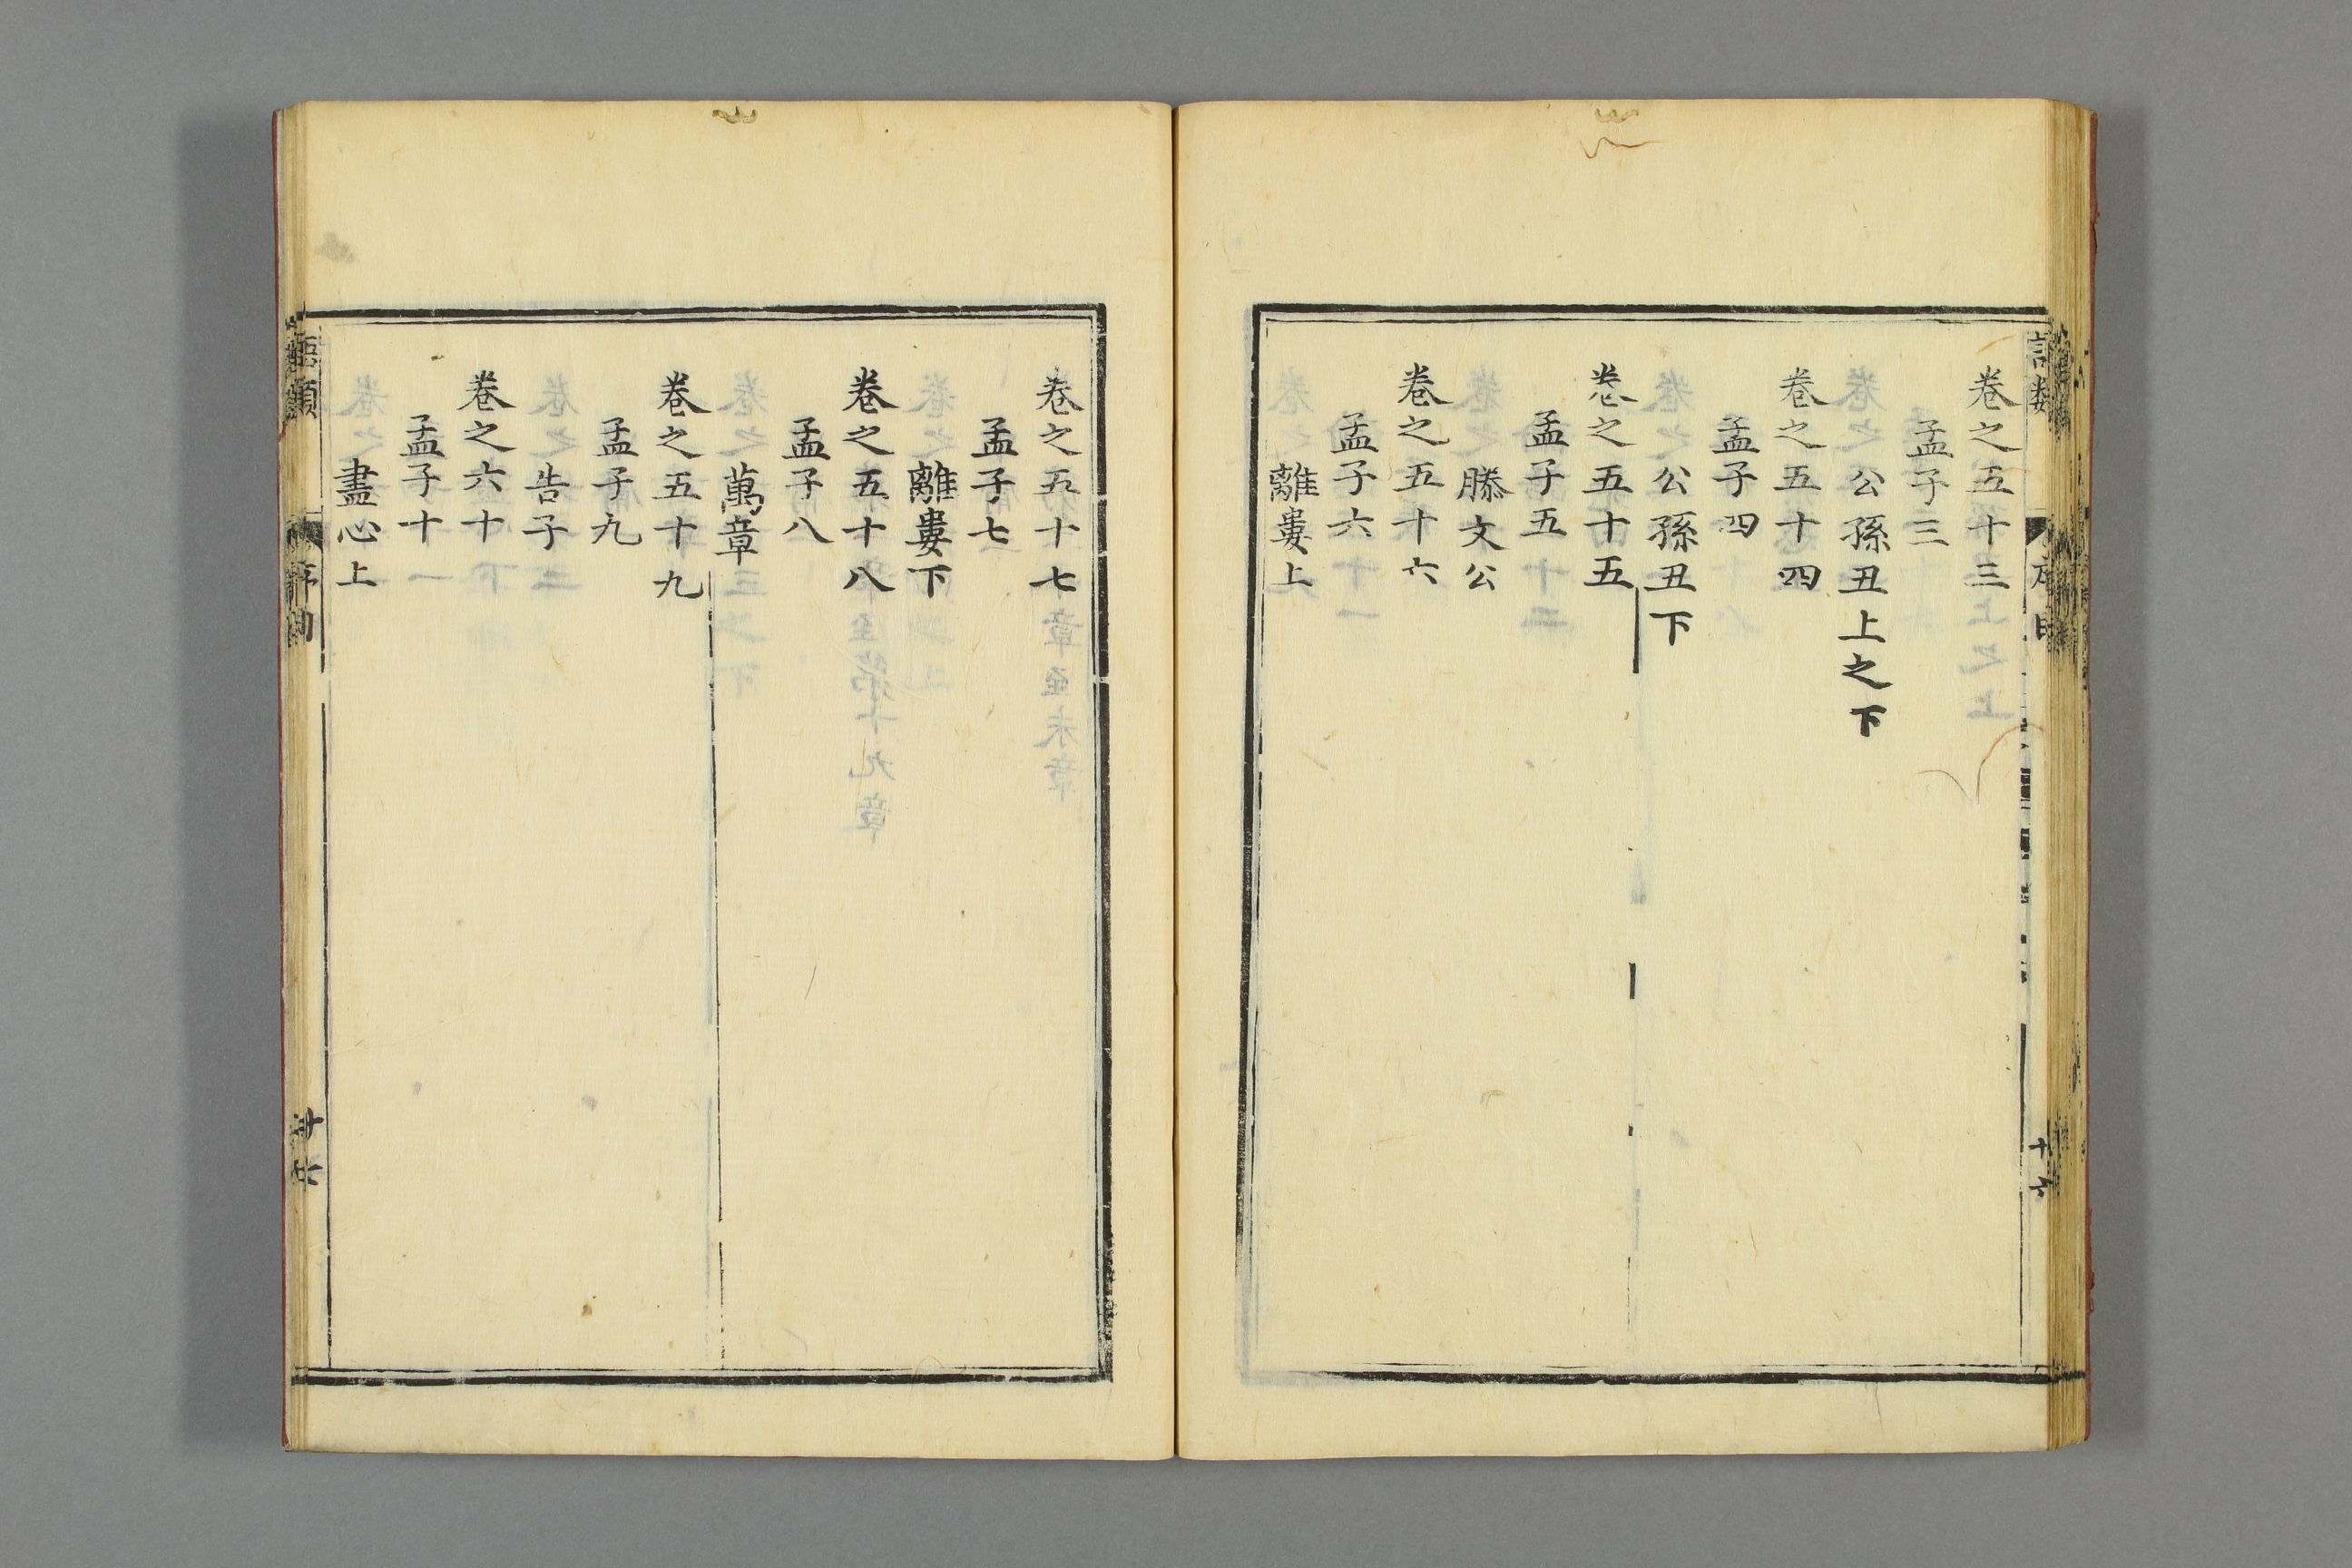 卷之五十三
孟子三
公孫丑上之下
卷之五十四
孟子四
公孫丑下
卷之五十五
孟子五
滕文公
卷之五十六
孟子六
離婁上
卷之五十七
孟子七
離婁下
卷之五十八
孟子八
萬章
卷之五十九
孟子九
告子
卷之六十
孟子十
盡心上